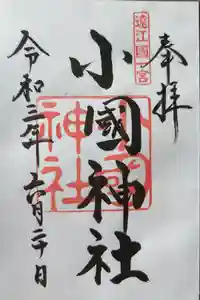 奉拝
遠江國一宮
小國神社
小國
神社
令和三年六月二十日